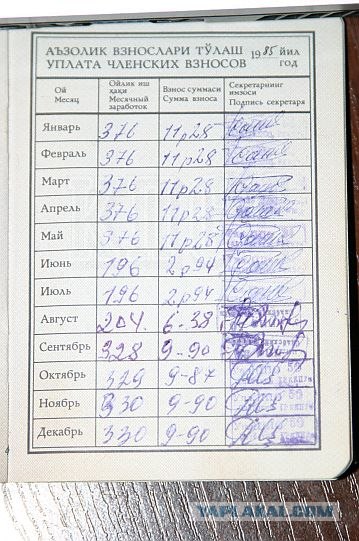 АЪЗОЛИК ВЗНОСЛАРИ ТЎЛАШ
УПЛАТА ЧЛЕНСКИХ ВЗНОСОВ
1985 йил
год
Ой
Месяц
Ойлик иш
ҳақи
Месячный
заработок
Взнос суммаси
Сумма взноса
Секретарнинг
имзоси
Подпись секретаря
Январь 376 11р28
Февраль 376 11р28
Март 376 11р28
Апрель 376 11р28
Май 376 11р28
Июнь 196 2р94
Июль 196 2р94
Август 204. 6-38
Сентябрь 328 9-90
Октябрь 329 9-87
Ноябрь 330 9-90
Декабрь 330 9-90
YAPLAKAL.COM